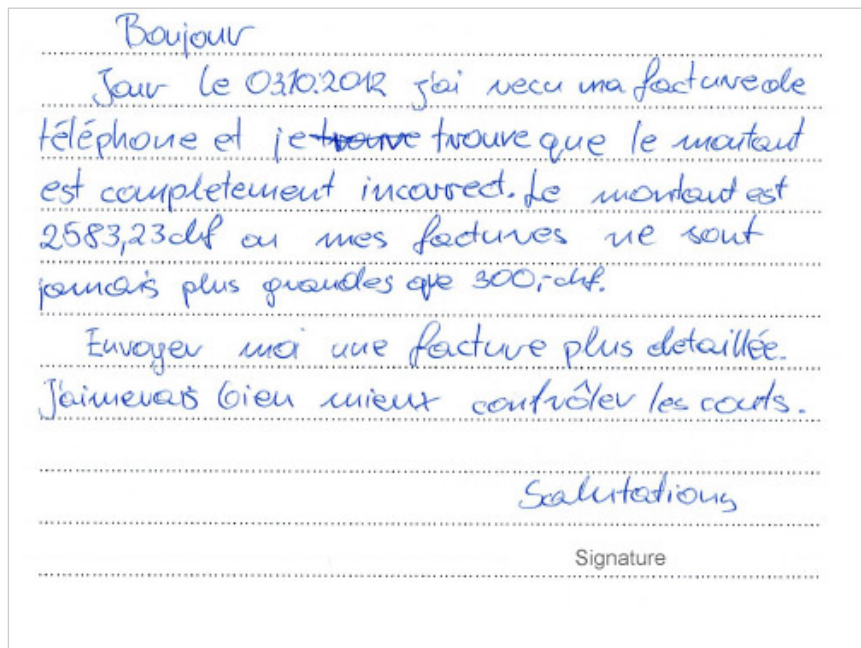 Boujour
Jour le 03.10.2012 j'ai recu ma facture de
téléphone et je trouve trouve que le montant
est completement incorrect. Le montant est
2583,23 chf ou mes factures ne sont
jamais plus grandes que 300,- chf.
Envoyer moi une facture plus detaillée.
J'aimerais bien mieux contrôler les couts.
Salutations
Signature